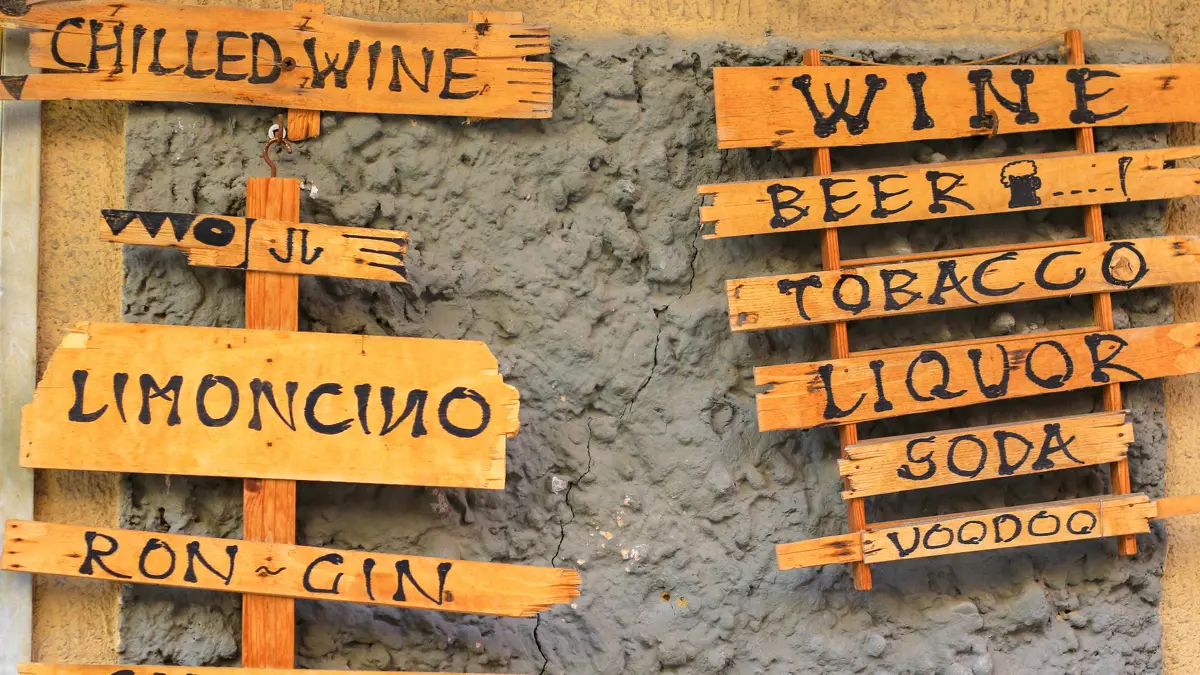 CHILLED WINE
LIMONCINO
RON ~ GIN
WINE
BEER ....!
TOBACCO
LIQUOR
SODA
VOODOO